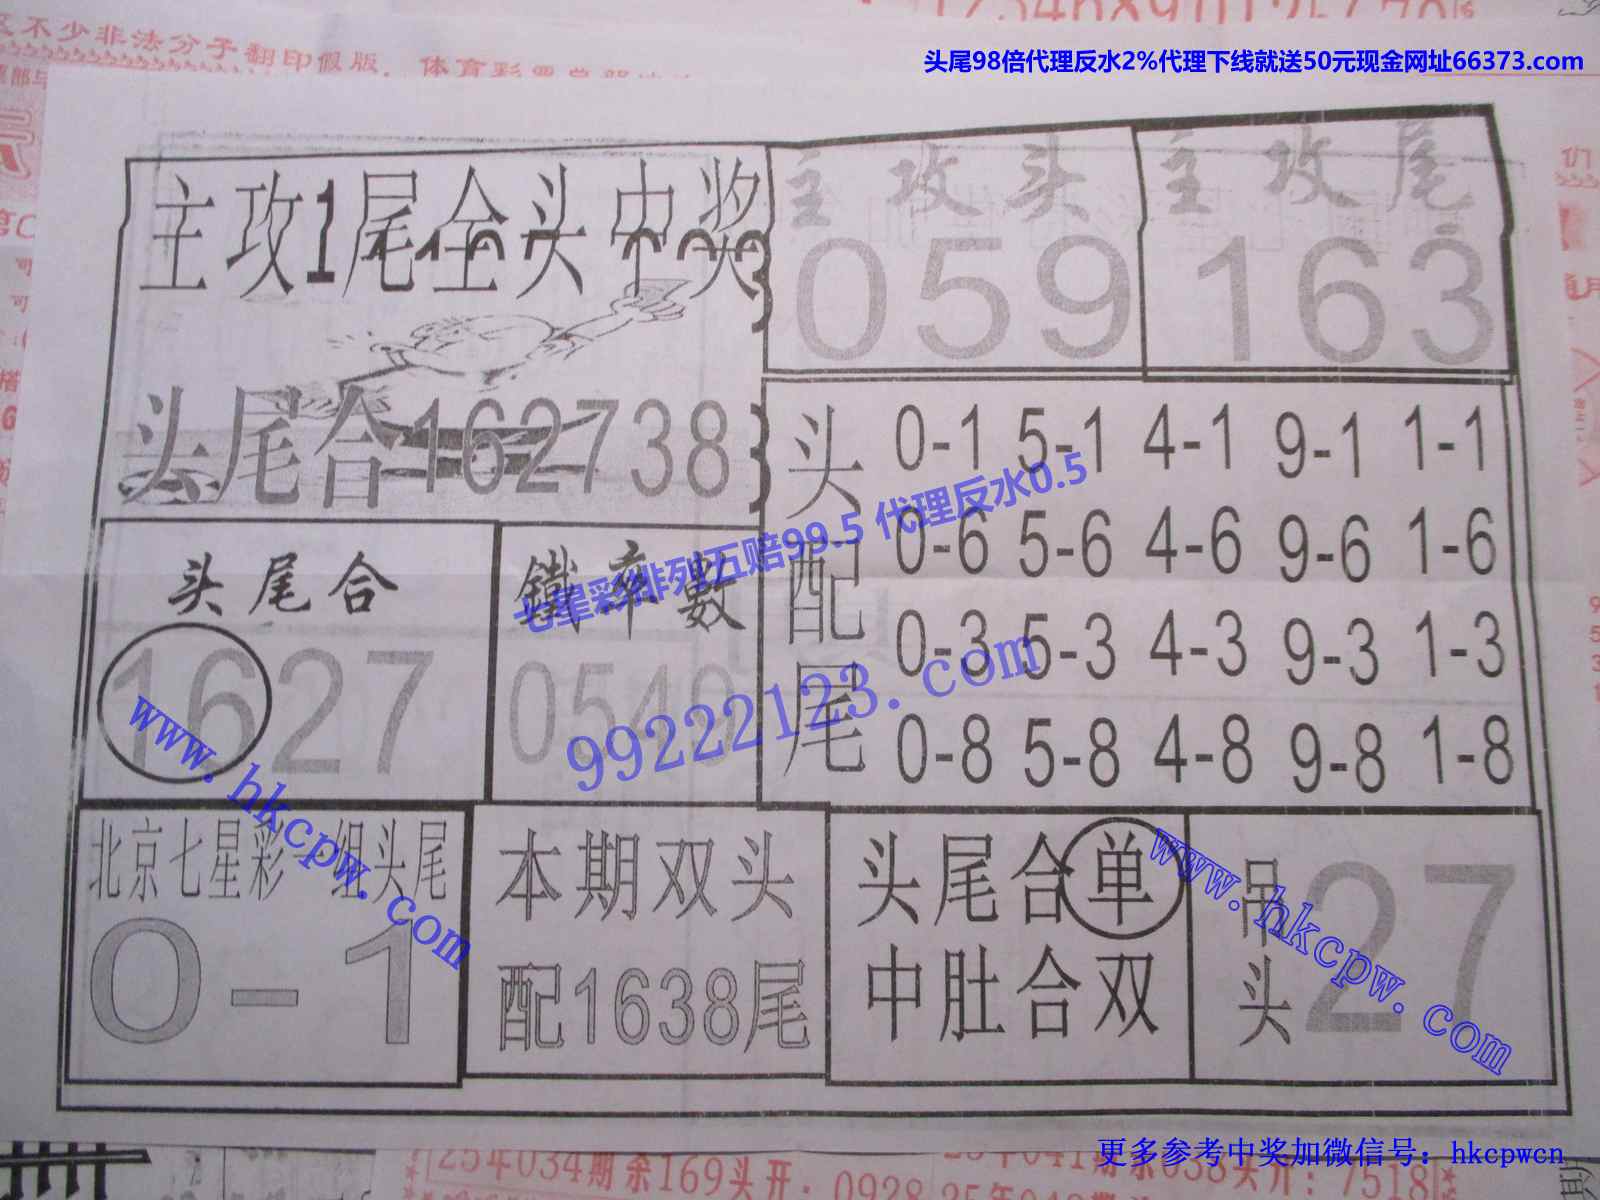 区不少非法分子翻印假版
头尾98倍代理反水2%代理下线就送50元现金网址66373.com
主攻1尾全头中奖
头尾合162738
主攻头
059
主攻尾
163
头尾合
1627
鐵率數
054
头配尾
0-1 5-1 4-1 9-1 1-1
0-6 5-6 4-6 9-6 1-6
0-3 5-3 4-3 9-3 1-3
0-8 5-8 4-8 9-8 1-8
七星彩排列五赔99.5 代理反水0.5
99222123.com
www.hkcpw.com
北京七星彩一组头尾
0-1
本期双头
配1638尾
头尾合单
中肚合双
吊头
27
www.hkcpw.com
更多参考中奖加微信号：hkcpwcn
25年034期余169头开：0928